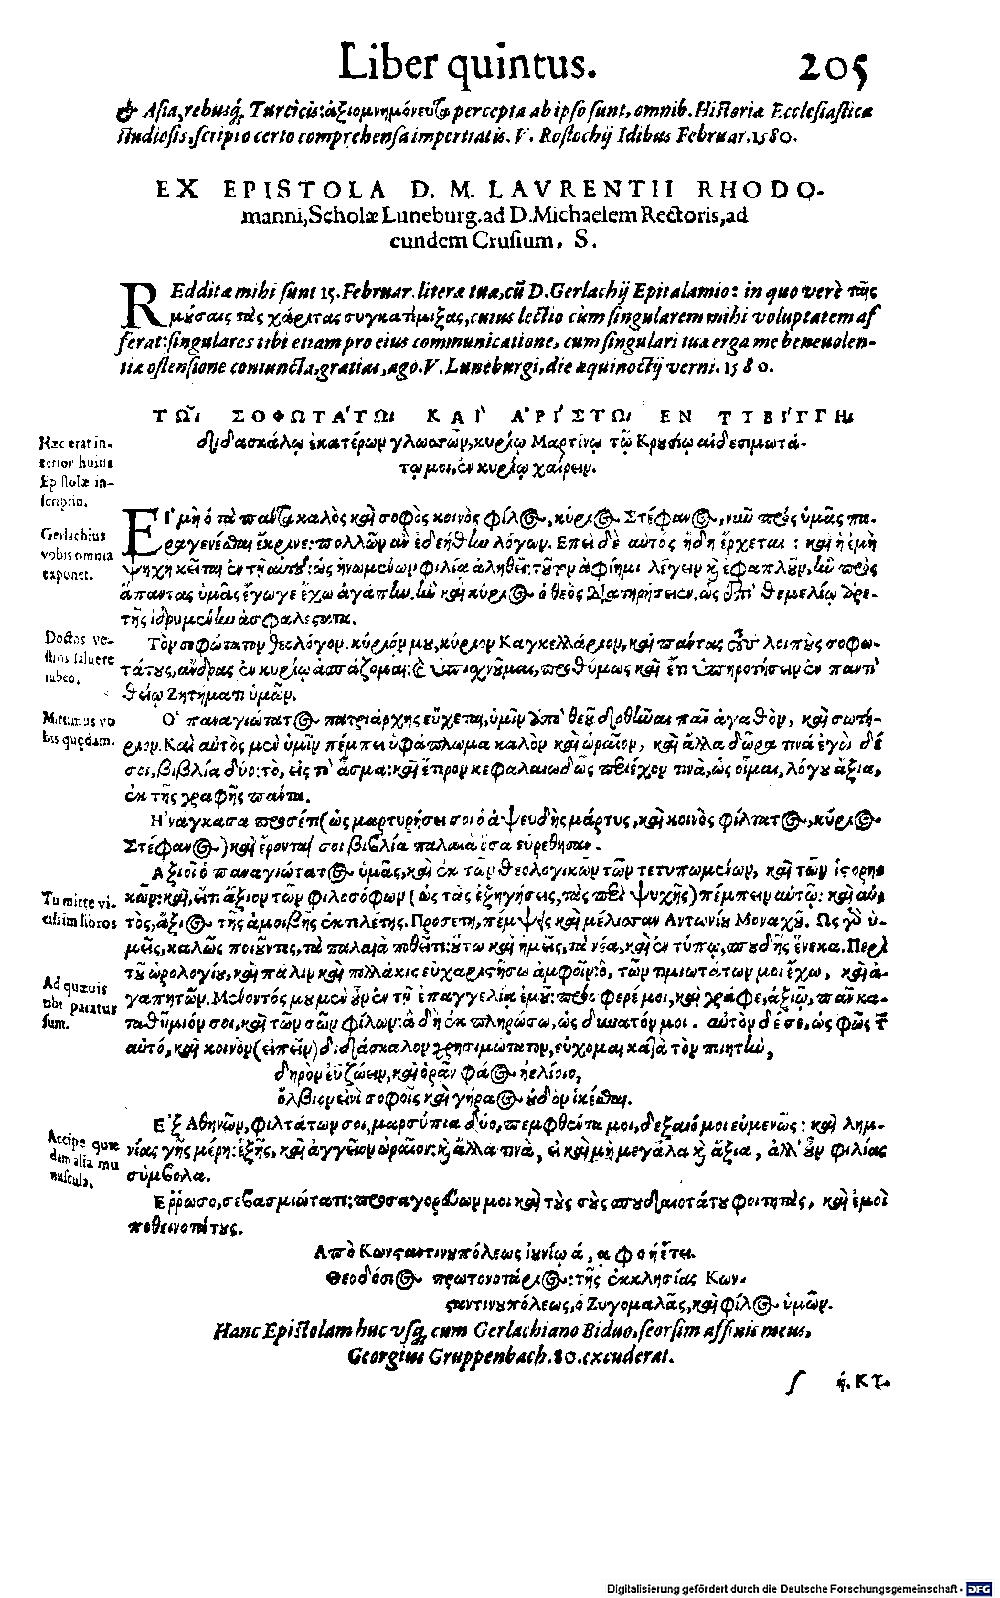 Liber quintus. 205
& Asia, rebusq́ Turcicis: ἀξιομνημόνευτα percepta ab ipso sunt, omnib. Historiæ Ecclesiasticæ
studiosis, scripto certo comprehensa impertiatis. V. Rostochij Idibus Februar. 1580.
EX EPISTOLA D. M. LAVRENTII RHODO-
manni, Scholæ Luneburg. ad D. Michaelem Rectoris, ad
eundem Crusium, S.
REdditæ mihi sunt 15. Februar. literæ tuæ, cū D. Gerlachij Epitalamio: in quo verè ταῖς
μούσαις τὰς χάριτας συγκατέμιξας, cuius lectio cùm singularem mihi voluptatem af
ferat: singulares tibi etiam pro eius communicatione, cum singulari tua erga me beneuolen-
tiæ ostensione coniuncta, gratias, ago. V. Luneburgi, die æquinoctij verni. 1580.
ΤΩ͂Ι ΣΟΦΩΤΑΤΩΙ ΚΑῚ ἈΡΊΣΤΩΙ ΕΝ ΤΥΒΙΓΓΗΙ
διδασκάλῳ ἑκατέρων γλωττῶν, κυρίῳ Μαρτίνῳ τῷ Κρουσίῳ αἰδεσιμωτά-
τῳ μοι, ἐν κυρίῳ χαίρειν.
Hæc erat in-
terior huius
Epistolæ in-
scriptio.
Εἰ μὴ ὁ τὰ πάντα καλὸς καὶ σοφὸς κοινὸς φίλος, κύριος Στέφανος, νῦν πρὸς ὑμᾶς πα-
Gerlachius
vobis omnia
exponet.
ραγενέσθαι ἔκρινε: πολλῶν ἂν ἐδεήθην λόγων. Ἐπεὶ δὲ αὐτὸς ἤδη ἔρχεται: καὶ ἡ ἐμὴ
ψυχὴ κεῖται ἐν τῇ αὐτοῦ: ὡς ἡνωμένων φιλίᾳ ἀληθεῖ: τούτῳ ἀφίημι λέγειν καὶ ἐφαπλοῦν, ἣν πρὸς
ἅπαντας ὑμᾶς ἔγωγε ἔχω ἀγάπην. ἣν καὶ κύριος ὁ θεὸς διατηρήσειεν, ὡς ἐπὶ θεμελίῳ ἀρε-
τῆς ἱδρυμένην ἀσφαλεστάτα.
Doctos ve-
stros saluere
iubeo.
Τὸν σοφώτατον θεολόγον, κύριόν μου, κύριον Καγκελλάριον, καὶ πάντας τοὺς λοιποὺς σοφω-
τάτους, ἄνδρας ἐν κυρίῳ ἀσπάζομαι: καὶ ὑπισχνοῦμαι, προθύμως καὶ ἔτι ὑπηρετήσειν ἐν παντὶ
θείῳ ζητήματι ὑμῶν.
Mittimus vo
bis quędam.
Ὁ παναγιώτατος πατριάρχης εὔχεται, ὑμῖν ἀπὸ θεοῦ δοθῆναι πᾶν ἀγαθὸν, καὶ σωτή-
ριον. Καὶ αὐτὸς μὲν ὑμῖν πέμπει ὑφάπλωμα καλὸν καὶ ὡραῖον, καὶ ἄλλα δῶρα τινά ἐγὼ δέ
σοι, βιβλία δύο: τὸ, εἰς τὸ ἆσμα: καὶ ἕτερον κεφαλαιωδῶς περιέχον τινὰ, ὡς οἶμαι, λόγου ἄξια,
ἐκ τῆς γραφῆς πάντα.
Ἠνάγκασα προσέτι (ὡς μαρτυρήσει σοι ὁ ἀψευδὴς μάρτυς, καὶ κοινὸς φίλτατος, κύριος
Στέφανος) καὶ ἔρονταί σοι βιβλία παλαιὰ ὅσα εὑρέθησαν.
Ἀξιοῖ ὁ παναγιώτατος ὑμᾶς, καὶ ἐκ τῶν θεολογικῶν τῶν τετυπωμένων, καὶ τῶν ἱστορι-
Tu mitte vi-
cissim libros
κῶν: καὶ, εἴ τι ἄξιον τῶν φιλοσόφων (ὡς τὰς ἐξηγήσεις, τὰς περὶ ψυχῆς) πέμπειν αὐτῷ: καὶ αὐ-
τὸς, ἄξιος τῆς ἀμοιβῆς ἐκπλέτης. Προσέτι, πέμψῃς καὶ μέλισσαν Ἀντωνίου Μοναχοῦ. Ὡς γὰρ ὑ-
μεῖς, καλῶς ποιοῦντες, τὰ παλαιὰ ποθεῖτε: οὕτω καὶ ἡμεῖς, τὰ νέα, καὶ ἐν τύπῳ, σπουδῆς ἕνεκα. Περὶ
τοῦ ὡρολογίου, καὶ πάλιν καὶ πολλάκις εὐχαριστήσω ἀμφοῖν: ὃ, τῶν τιμιωτάτων μοι ἔχω, καὶ ἀ-
Ad quæuis
tibi paratus
sum.
γαπητῶν. Μένοντός μου μὲν οὖν ἐν τῇ ἐπαγγελίᾳ ἐμοῦ: πρόσφερέ μοι, καὶ γράφε, ἀξιῶ, πᾶν κα-
ταθύμιόν σοι, καὶ τῶν σῶν φίλων: ἃ δὴ ἐκπληρώσω, ὡς δυνατόν μοι. αὐτὸν δέ σε, ὡς φῶς τὸ
αὐτό, καὶ κοινὸν (εἰπεῖν) διδάσκαλον χρησιμώτατον, εὔχομαι κατὰ τὸν ποιητὴν,
δηρὸν εὖ ζώειν, καὶ ὁρᾶν φάος ἠελίοιο,
ὄλβιον μὲν σοφοῖς καὶ γήραος οὐδὸν ἱκέσθαι.
Accipe quæ
dam alia mu
nuscula.
Ἐξ Ἀθηνῶν, φιλτάτων σοι, μαρσύπια δύο, πεμφθέντα μοι, δέξαιό μοι εὐμενῶς: καὶ λημ-
νίας γῆς μέρη: ἑξῆς, καὶ ἀγγεῖον ὡραῖον: καὶ ἄλλα τινὰ, εἰ καὶ μὴ μεγάλα καὶ ἄξια, ἀλλ' οὖν φιλίας
σύμβολα.
Ἔρρωσο, σεβασμιώτατε: προσαγορεύων μοι καὶ τοὺς σοὺς σπουδαιοτάτους φοιτητὰς, καὶ ἐμοὶ
ποθεινοτάτους.
Ἀπὸ Κωνσταντινουπόλεως ἰουνίῳ ά, αφοή ἔτει.
Θεοδόσιος πρωτονοτάριος: τῆς ἐκκλησίας Κων-
σταντινουπόλεως, ὁ Ζυγομαλᾶς, καὶ φίλος ὑμῶν.
Hanc Epistolam huc vsq; cum Gerlachiano Biduo, seorsim affinis meus,
Georgius Gruppenbach. 80. excuderat.
ſ ή. ΚΙ.
Digitalisierung gefördert durch die Deutsche Forschungsgemeinschaft - DFG